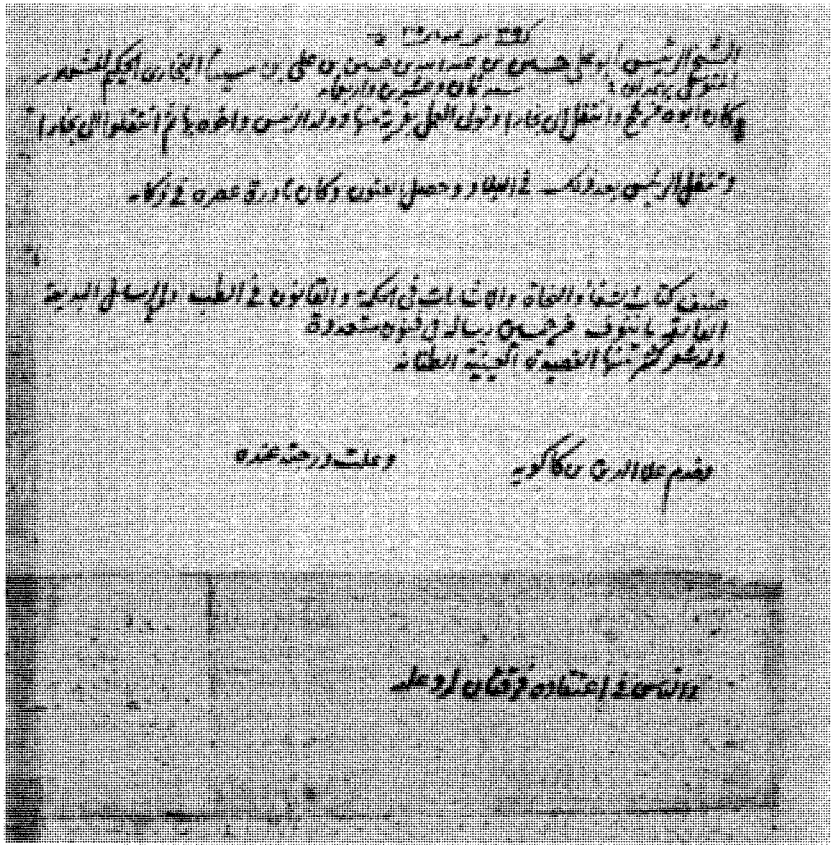 الشيخ الرئيس أبو علي حسين بن عبد الله بن حسين بن علي بن سينا البخاري الحكيم المشهور
المتوفى بهمدان سنة ثمان وعشرين واربعمائة
وكان ابوه من بلخ وانتقل إلى بخارا وتولى العمل بقرية منها وولد الرئيس واخوه بها ثم انتقلوا الى بخارا
وتنقل الرئيس بعد ذلك في البلاد وحصل الفنون وكان نادرة عصره في ذكائه
صنف كتاب الشفا والنجاة والاشارات في الحكمة والقانون في الطب والرسائل البديعة
رسالة في فنون متعددة
وله شعر منها القصيدة العينية
وخدم علاء الدين بن كاكويه وعلت درجته عنده
والناس في اعتقاده فرقتان له وعليه